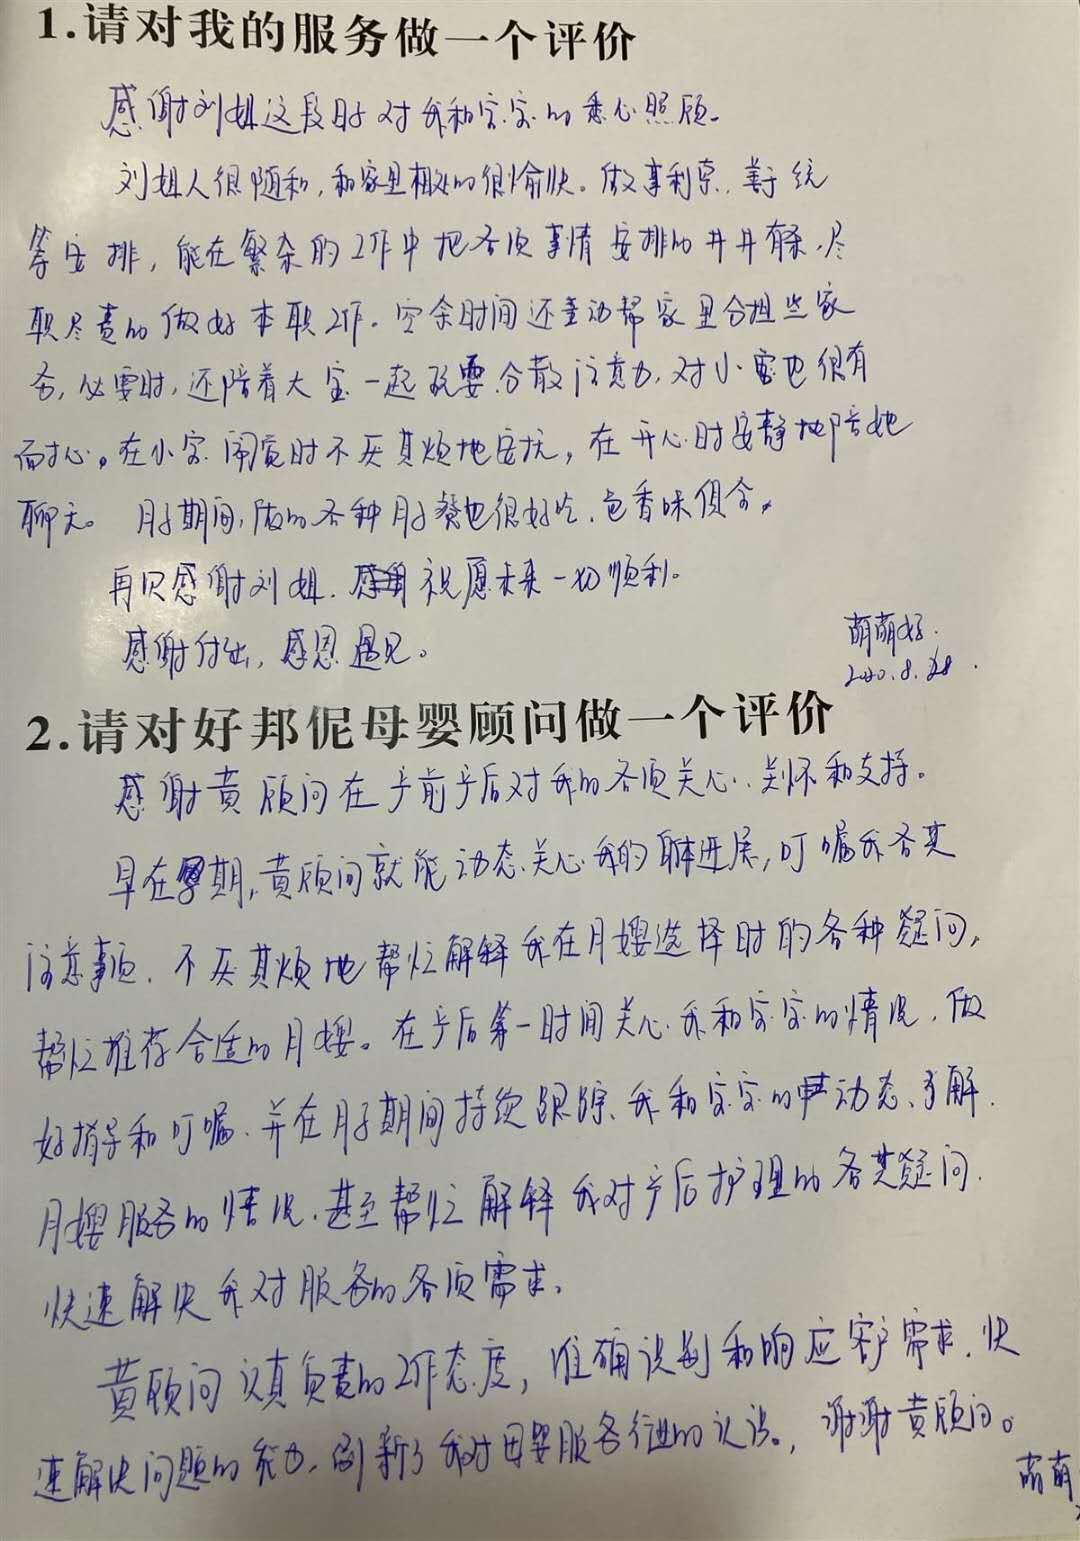 1.请对我的服务做一个评价
感谢刘姐这段时对我和宝宝的悉心照顾。
刘姐人很随和,和家里相处的很愉快。做事利索,善于统
筹安排,能在繁杂的工作中把各项事情安排的井井有条,尽
职尽责的做好本职工作。空余时间还主动帮家里分担些家
务,必要时,还陪着大宝一起玩耍分散注意力,对小宝也很有
耐心。在小宝闹觉时不厌其烦地安抚,在开心时安静地陪她
聊天。月子期间,做的各种月子餐也很好吃,色香味俱全。
再次感谢刘姐,祝愿未来一切顺利。
感谢付出,感恩遇见。
萌萌好.
2020.8.28.
2.请对好邦伲母婴顾问做一个评价
感谢黄顾问在产前产后对我的各项关心、关怀和支持。
早在孕期,黄顾问就能动态关心我的进展,叮嘱我各类
注意事项,不厌其烦地帮忙解释我在月嫂选择时的各种疑问,
帮忙推荐合适的月嫂。在产后第一时间关心我和宝宝的情况,做
好指导和叮嘱,并在月子期间持续跟踪、我和宝宝的动态、了解
月嫂服务的情况,甚至帮忙解释我对产后护理的各类疑问,
快速解决我对服务的各项需求。
黄顾问认真负责的工作态度,准确识别和响应客户需求,快
速解决问题的能力,刷新了我对母婴服务行业的认识。,谢谢黄顾问。
萌萌